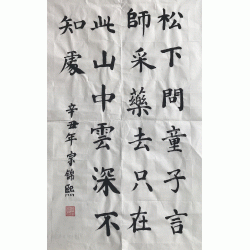 松下問童子言
師采藥去只在
此山中雲深不
知處
辛丑年宗錦熙